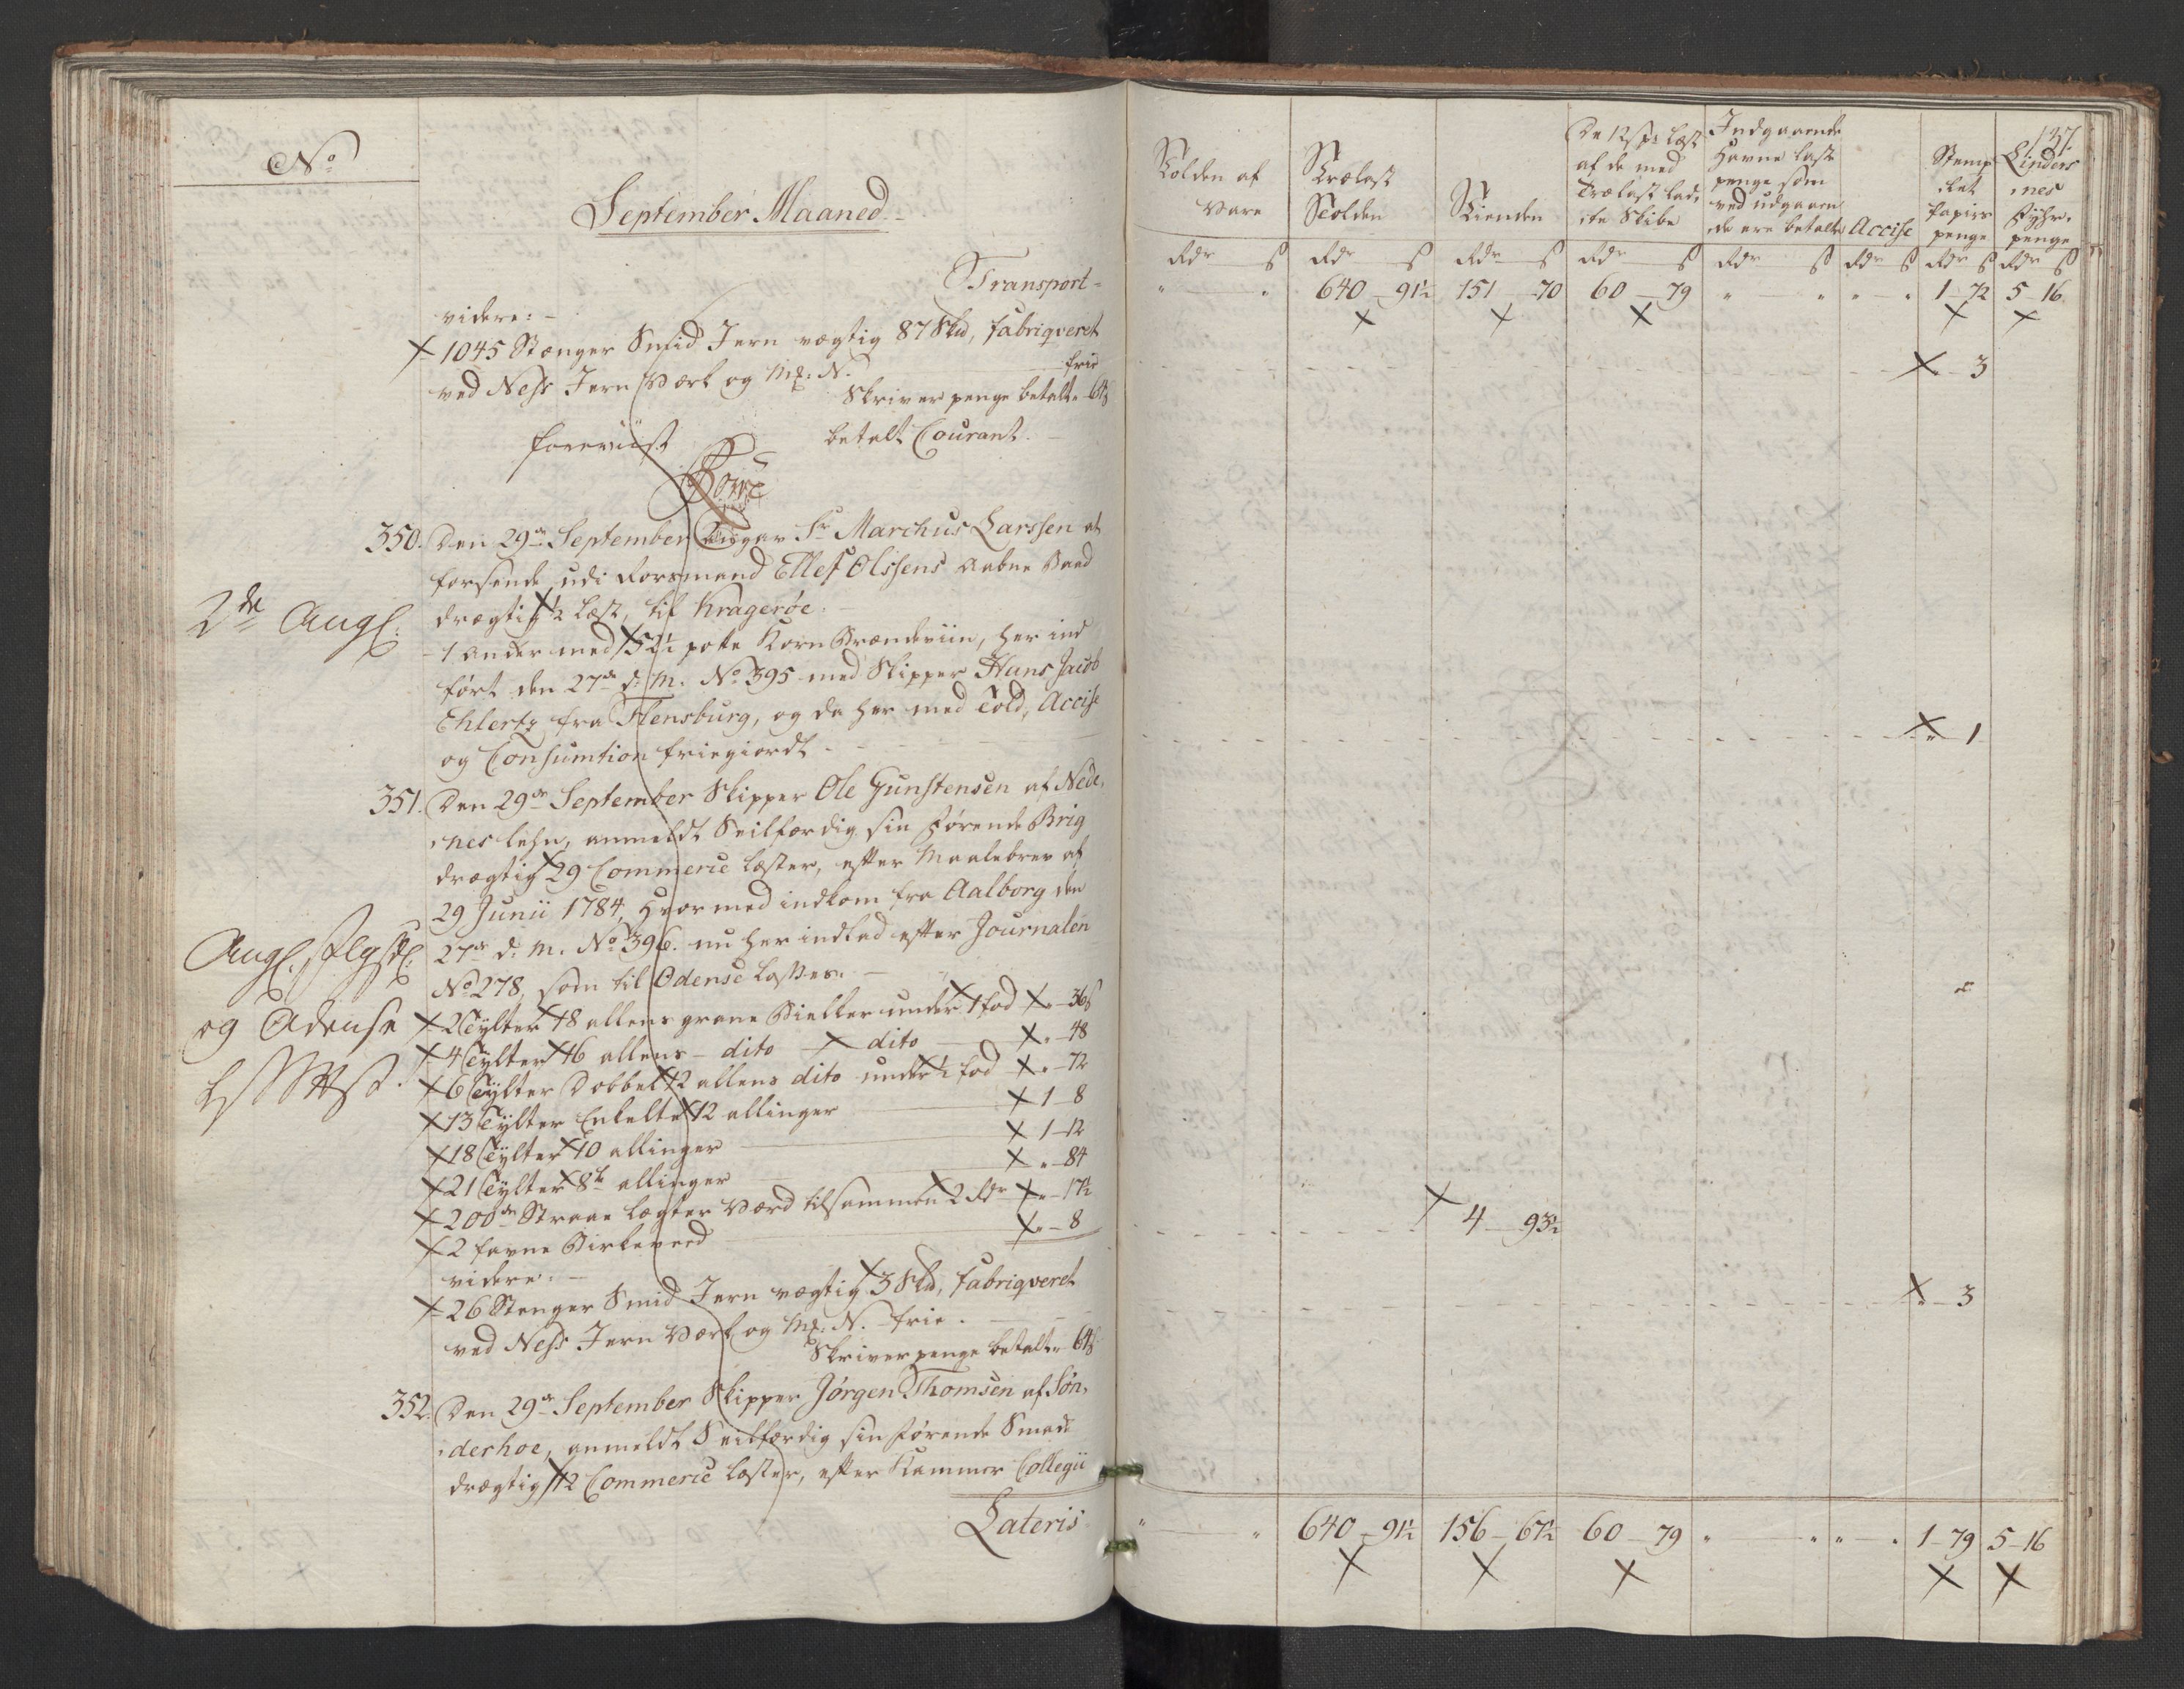 No
September Maaned.
Transport
videre:
1045 Stænger Smid Jern vægtig 87 Skd, fabriqveret
ved Ness Jern Værk og Mk: N. frie
Skriver penge betalt „ 64 s
foreviist betalt Courant.
350. Den 29de September angav Sr Marchus Larssen at
forsende udi Forsmand Ellef Olssens aabne Baad
2de Angl:
drægtig ½ Læst, til Kragerøe.
1 Anker med 35½ potte Korn Brændeviin, her ind
ført den 27de d. M. No 395 med Skipper Hans Jacob
Ehlertz fra Flensburg, og da her med Told, Accise
og Consumtion friegiordt
351. Den 29de September Skipper Ole Gunstensen af Nede,
nes lehn, anmeldt Seilfærdig sin førende Brig
drægtig 29 Commerce Læster, efter Maalebrev af
29 Junii 1784, hvormed indkom fra Aalborg den
27de d. M. No 396. nu her indlad efter Journalen
No 278, som til Odense losses.
og Odense
2 Tylter 18 allens grane Bielker under 1 fod „ 36 s
4 Tylter 16 allens dito dito „ 48
6 Tylter Dobbel 12 allens dito under ½ fod „ 72
13 Tylter Enkelte 12 allinger 1 8
18 Tylter 10 allinger 1 12
21 Tylter 8te allinger „ 84
200de Straae Lægter Værd tilsammen 2 Rdr „ 17½
2 favne Birkeveed „ 8
videre:
26 Stenger Smid Jern vægtig 3 Skd, fabriqveret
ved Ness Jern Værk og Mk: N. frie.
Skriver penge betalt „ 64 s
352. Den 29de September Skipper Jørgen Thomsen af Søn,
derhoe, anmeldt Seilfærdig sin førende Smak
drægtig 12 Commerce Læster, efter Kammer Collegii
Lateris
137.
Tolden af Vare
Trælast Tolden
Tienden
De 12 s pr Læst af de med Trælast lad,te Skibe
Indgaaende Havne Laste penge som ved udgaaen,de ere betalte
Accise
Stemp,let papiirs penge
Linders,nes Fyhr-penge
Rdr s Rdr s Rdr s Rdr s Rdr s Rdr s Rdr s Rdr s
„ „ 640 91½ 151 70 60 79 „ „ „ „ 1 72 5 16
„ 3
„ 1
4 93½
„ 3
„ „ 640 91½ 156 67½ 60 79 „ „ „ „ 1 79 5 16